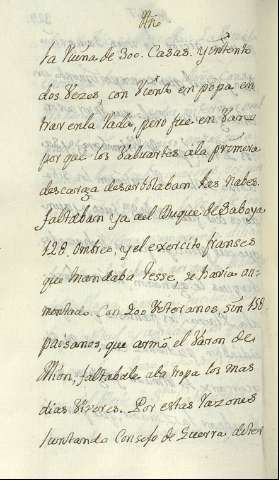 Año
la Ruina de 300. Casas. y intento
dos Vezes, con Viento en popa en
trar en la Rada, pero fue en Vano
por que los Valuartes ala primera
descarga desarbolaban las Nabes.
faltaban ya al Duque de Saboya
128. ombres, y el exercito franses
que mandaba Tesse, se havia au-
mentado. Con 200 Veteranos, sin 158
paisanos, que armò el Varon de
faltabale ala tropa los mas
dias Viveres. Por estas Razones
juntando Consejo de Guerra deter